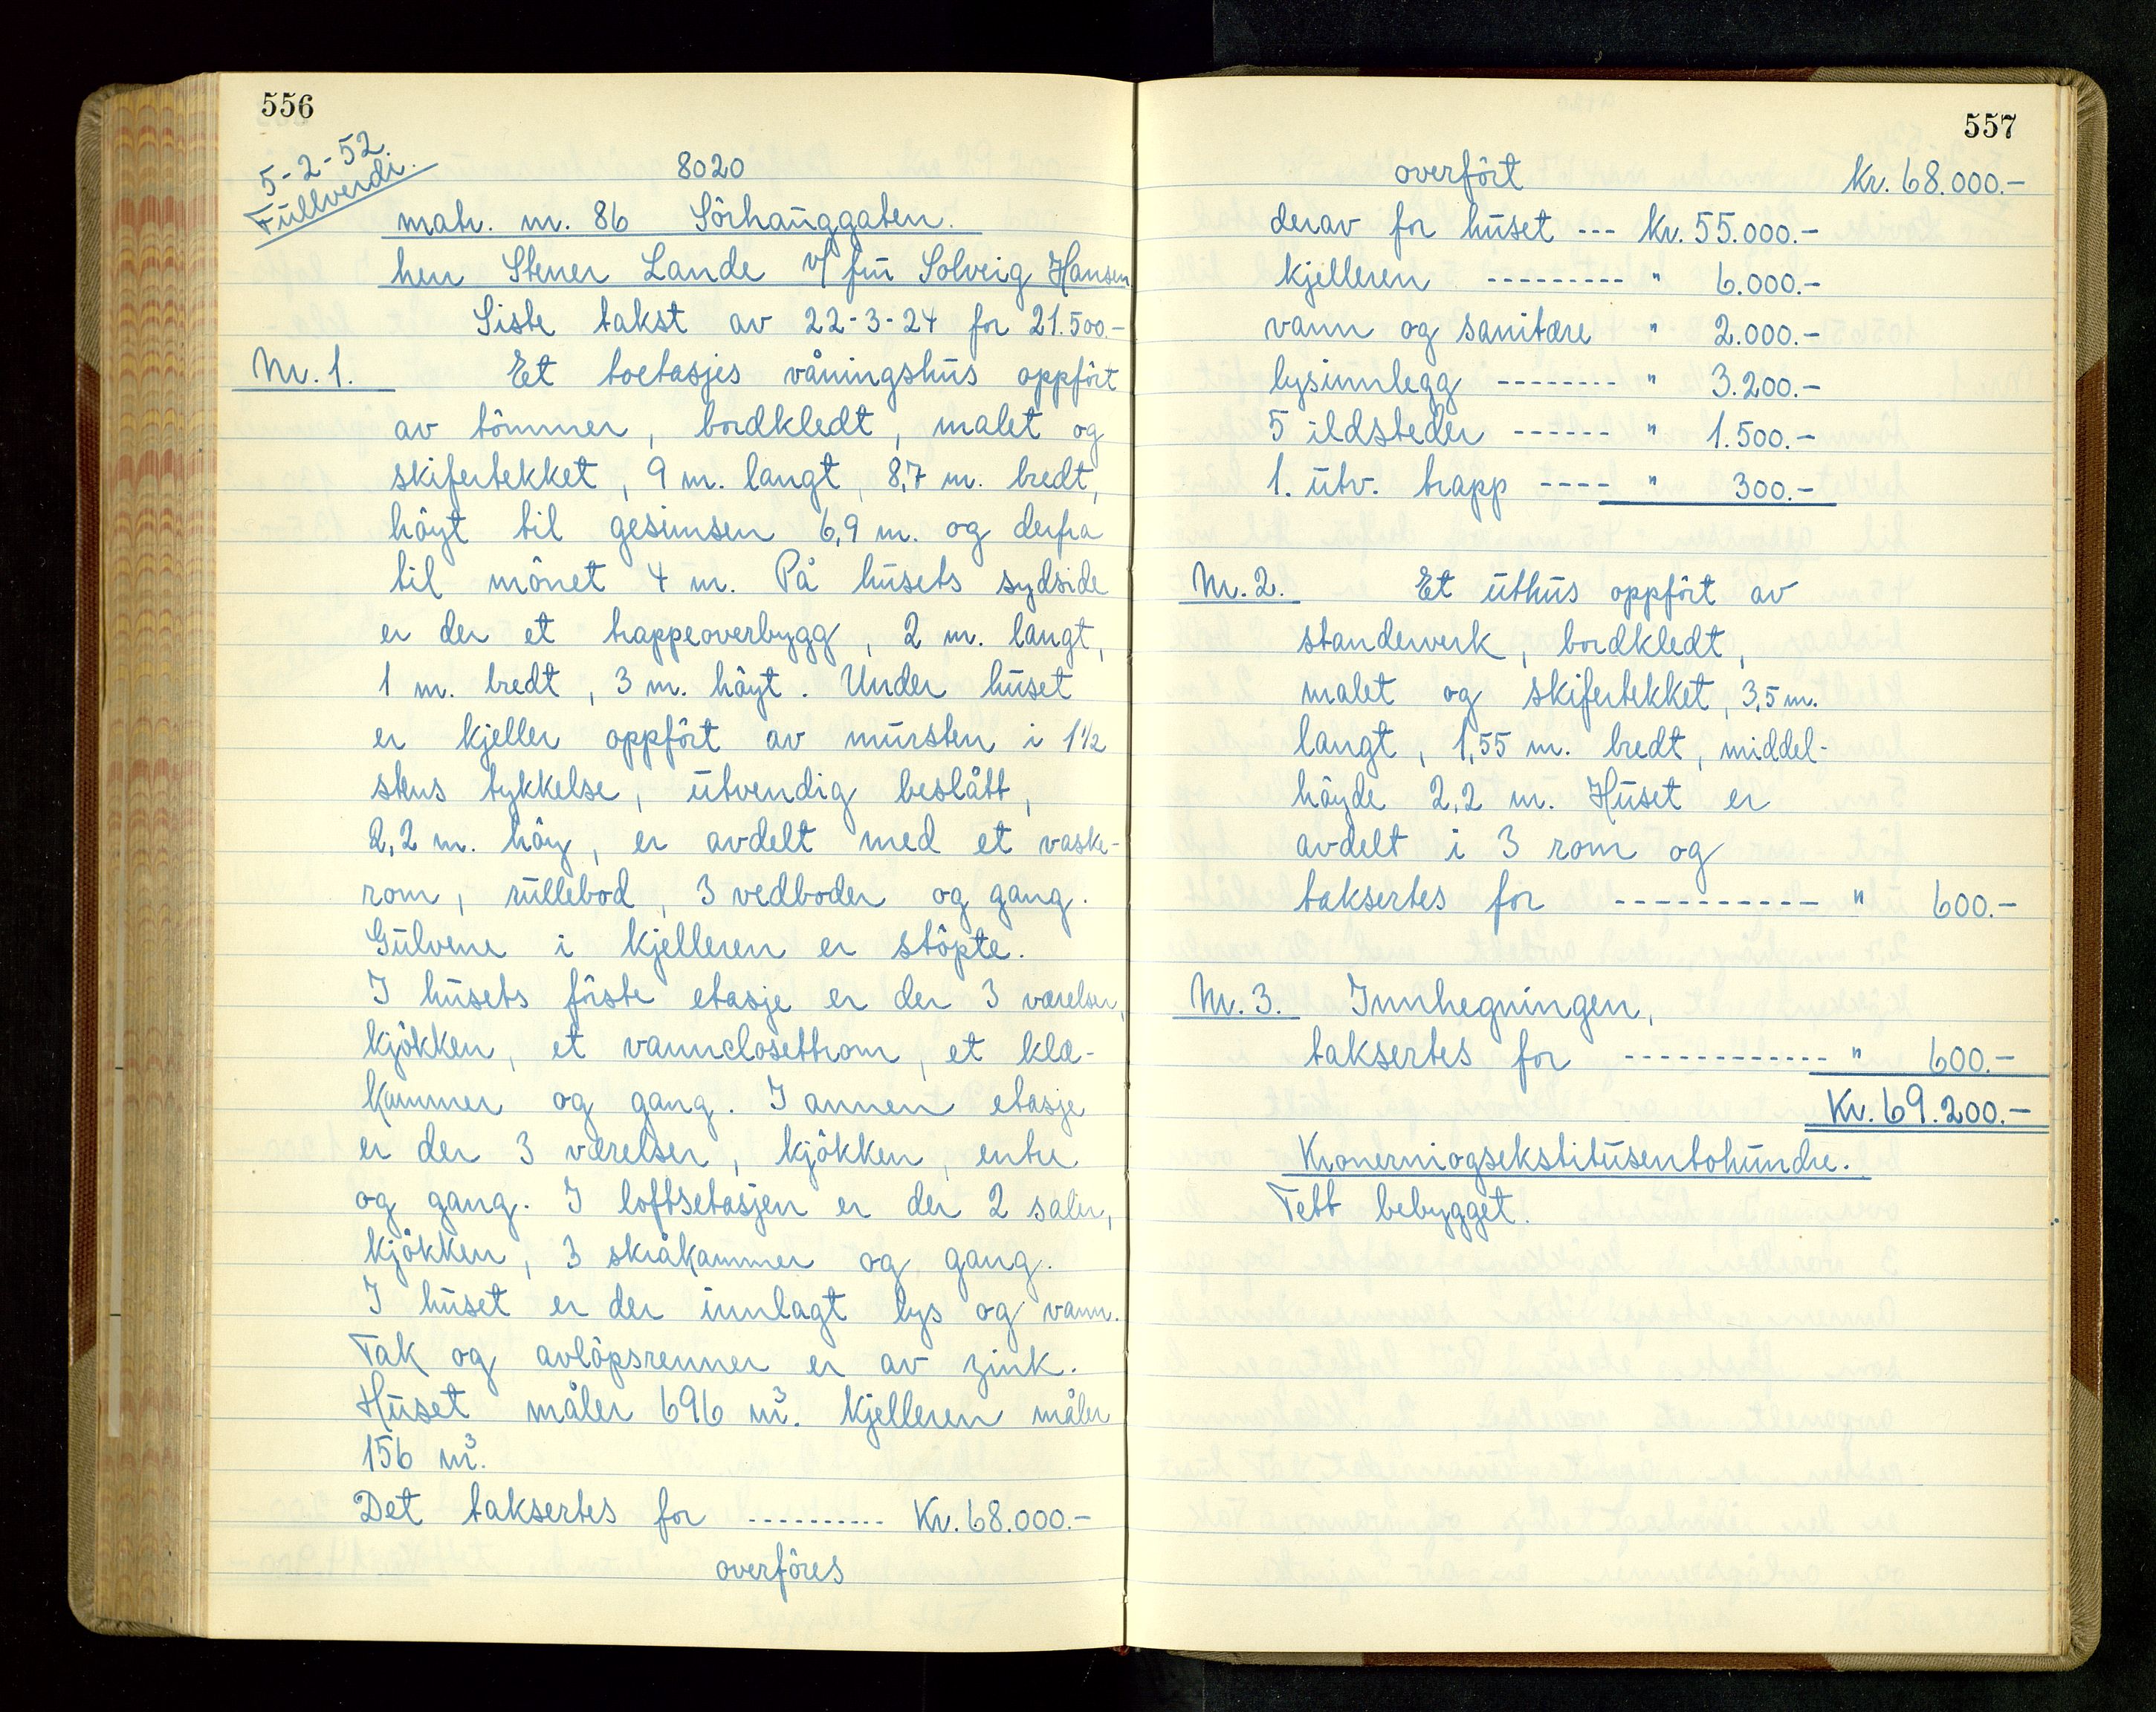 556
5-2-52.
Fullverdi.
8020
matr. nr. 86 Sörhauggaten.
herr Stener Lande v/ fru Solveig Hansen
Siste takst av 22-3-24 for 21.500.-
Nr. 1. Et toetasjes våningshus oppfört
av tömmer, bordkledt, malet og
skifertekket, 9 m. langt, 8,7 m. bredt,
höyt til gesimsen 6,9 m. og derfra
til mönet 4 m. På husets sydside
er der et trappeoverbygg, 2 m. langt,
1 m. bredt, 3 m. höyt. Under huset
er kjeller oppfört av mursten i 1½
stens tykkelse, utvendig beslått,
2,2 m. höy, er avdelt med et vaske-
rom, rullebod, 3 vedboder og gang.
Gulvene i kjelleren er stöpte.
I husets förste etasje er der 3 værelser,
kjökken, et vannclosettrom, et kle-
kammer og gang. I annen etasje
er der 3 værelser, kjökken, entre
og gang. I loftsetasjen er der 2 saler,
kjökken, 3 skråkammer og gang.
I huset er der innlagt lys og vann.
Tak og avlöpsrenner er av zink.
Huset måler 696 m³. kjelleren måler
156 m³.
Det taksertes for .......... Kr. 68.000.-
overföres
557
overfört Kr. 68.000.-
derav for huset --- Kr. 55.000.-
kjelleren --------- " 6.000.-
vann og sanitære " 2.000.-
lysinnlegg -------- " 3.200.-
5 ildsteder ------ " 1.500.-
1. utv. trapp ---- " 300.-
Nr. 2. Et uthus oppfört av
standerverk, bordkledt,
malet og skifertekket, 3,5 m.
langt, 1,55 m. bredt, middel-
höyde 2,2 m. Huset er
avdelt i 3 rom og
taksertes for ----------- " 600.-
Nr. 3. Innhegningen,
taksertes for ------------ " 600.-
Kr. 69.200.-
Kronerniogsekstitusentohundre.
Tett bebygget.